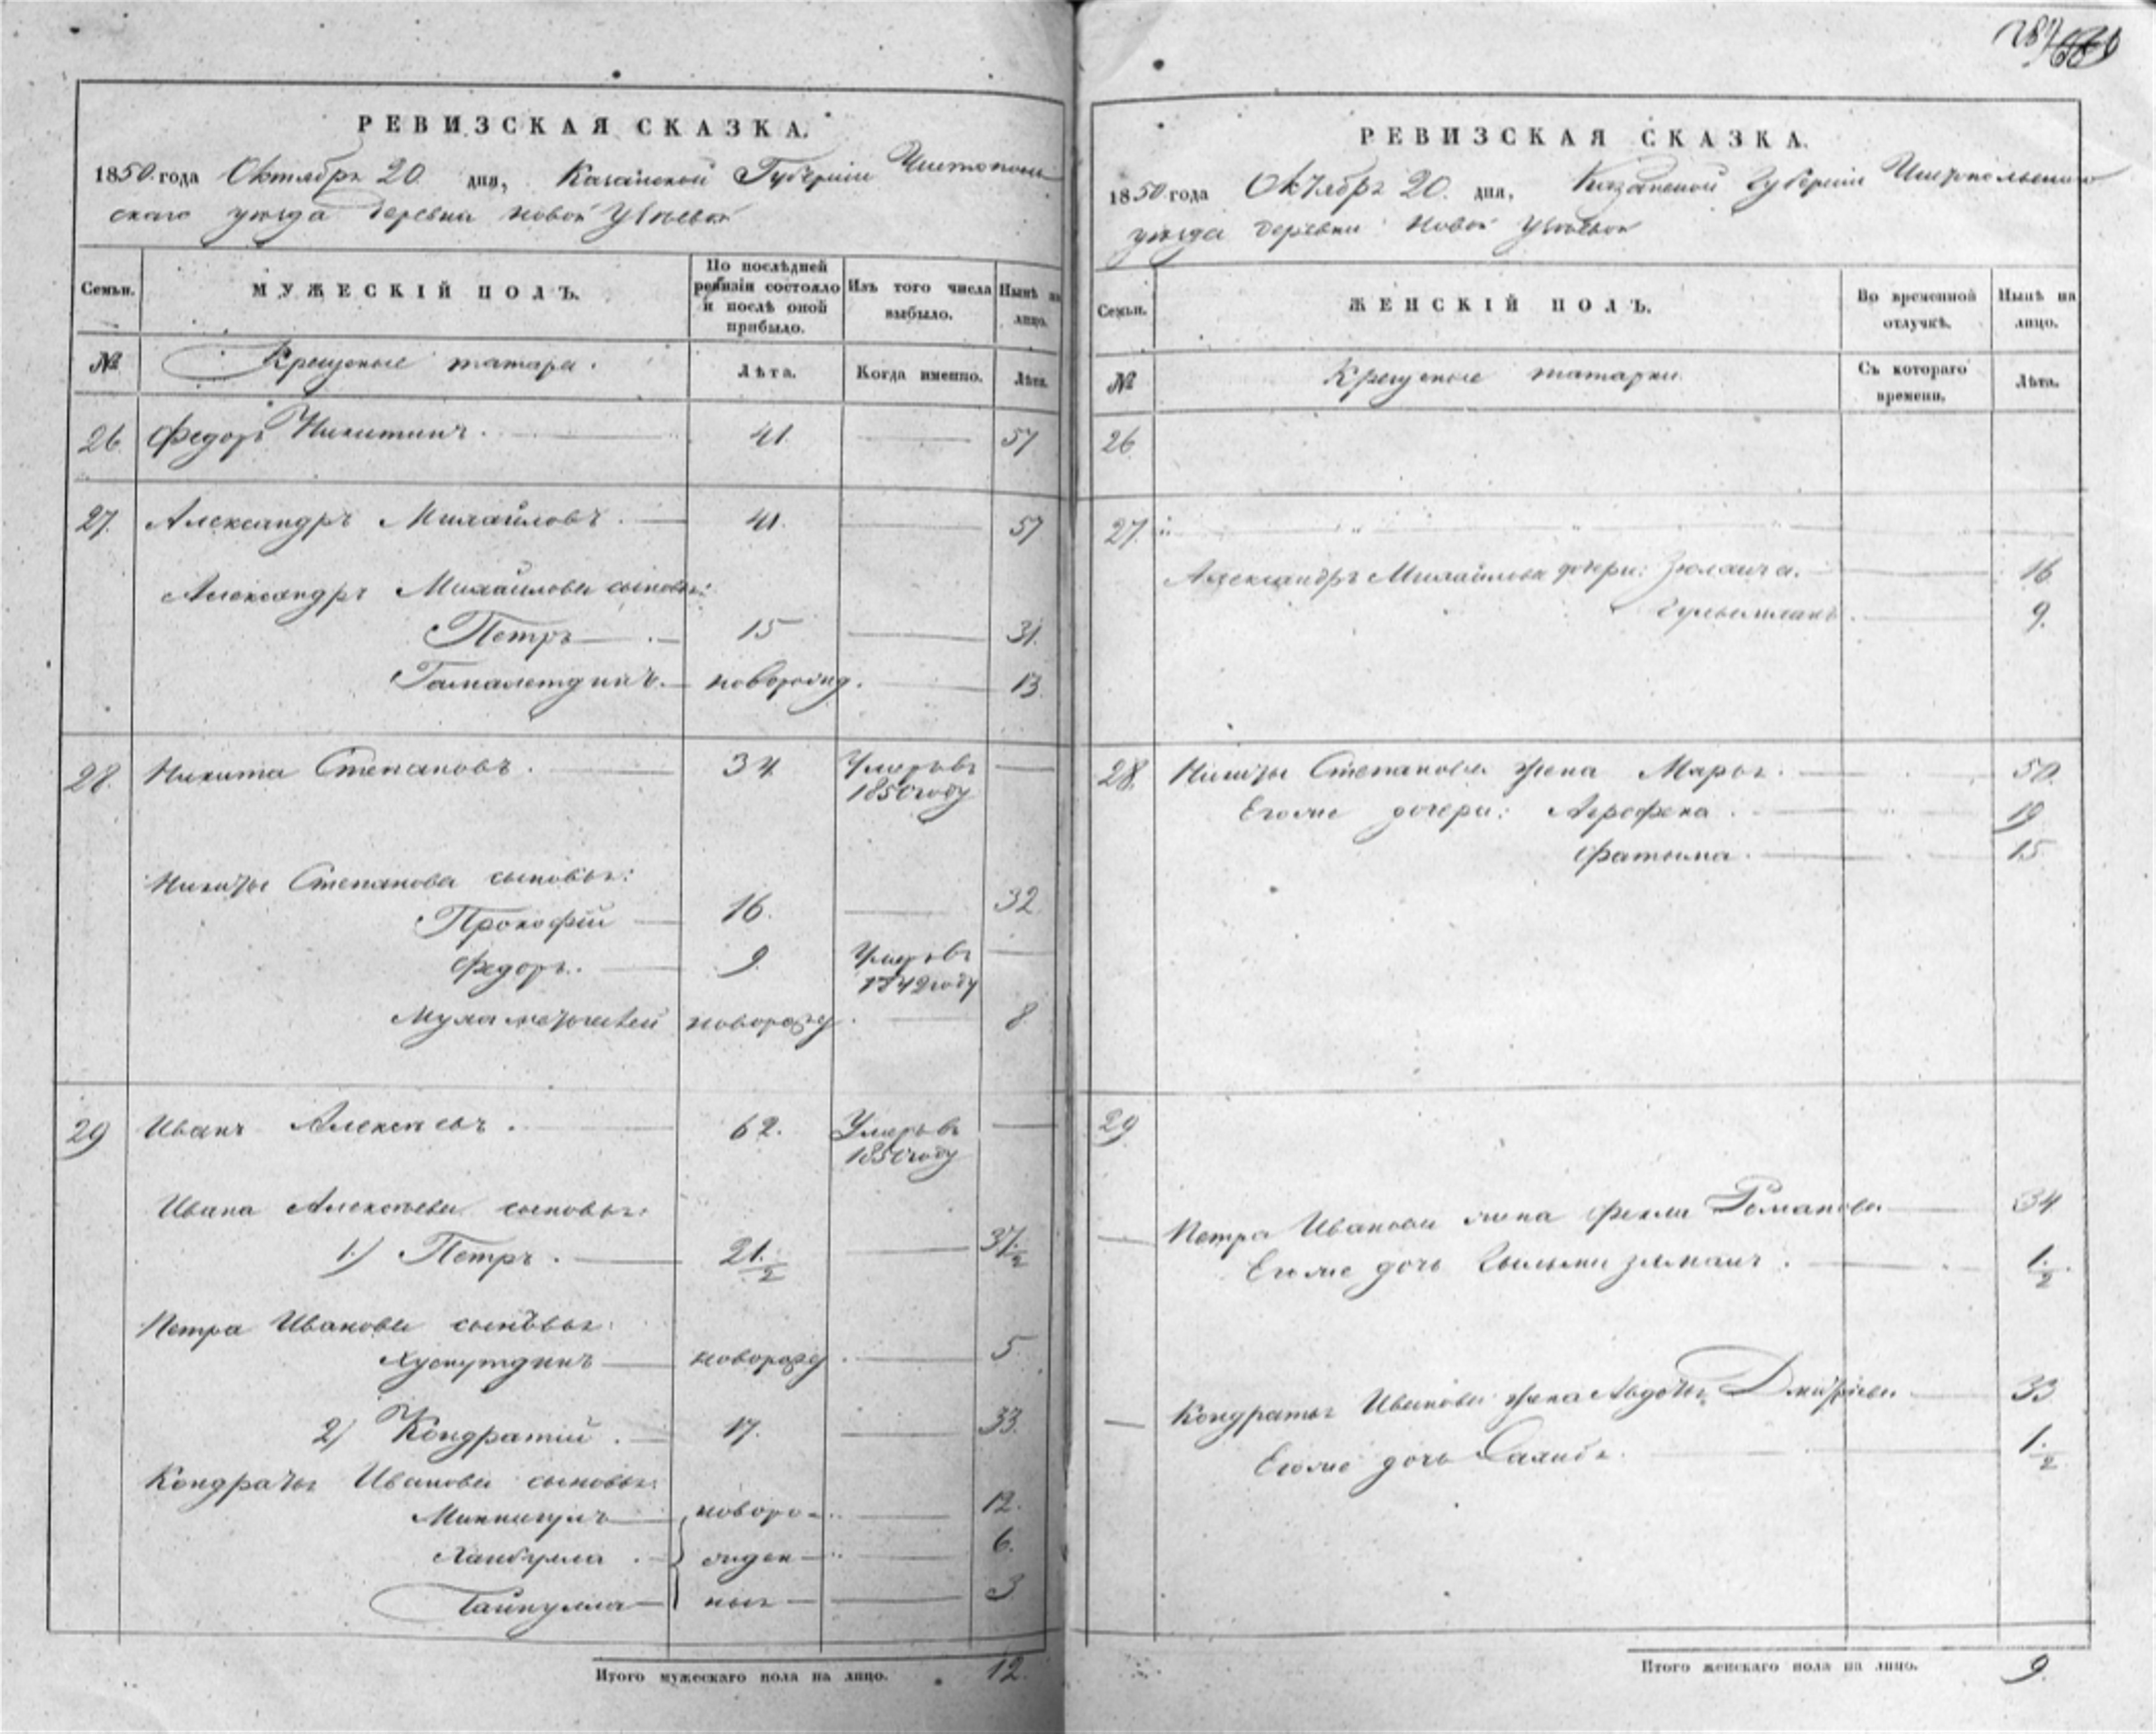 РЕВИЗСКАЯ СКАЗКА.
1850 года Октября 20 дня, Казанской Губернiи Чистополь
скаго уѣзда деревни Новой
Семьи.
МУЖЕСКІЙ ПОЛЪ.
По послѣдней ревизіи состояло и послѣ оной прибыло.
Изъ того числа выбыло.
Нынѣ на лицо.
№
Крещеные татара.
Лѣта.
Когда именно.
Лѣта.
26 Федоръ Никитинъ. 41. 57
27. Александръ Михайловъ. 41. 57
Александръ Михайлова сыновья:
Петръ 15 31.
Гамалетдинъ. новорожд. 13.
28. Никита Степановъ. 34 Умеръ въ
1850 году
Никиты Степанова сыновья:
Прокофій 16. 32.
Федоръ. 9. Умеръ въ
1842 году
новорожд. 8
29 Иванъ Алексѣевъ. 62. Умеръ въ
1850 году
Ивана Алексѣева сыновья:
1.) Петръ. 21. 1/2 37. 1/2
Петра Иванова сыновья:
Хуснутдинъ новорожд. 5
2) Кондратий. 17. 33.
Кондратья Иванова сыновья:
Миннигулъ новоро- 12.
Хайбулла жден 6.
Гайнулла ные 3
Итого мужескаго пола на лицо. 12.
РЕВИЗСКАЯ СКАЗКА.
1850 года Октября 20. дня, Казанской Губерніи Чистопольскаго
уѣзда деревни Новой
Семьи.
ЖЕНСКІЙ ПОЛЪ.
Во временной отлучкѣ.
Нынѣ на лицо.
№
Крещеные татарки.
Съ котораго времени.
Лѣта.
26
27.
Александръ Михайлова дочери: 16
9.
28. Никиты Степанова жена Марья. 50.
Егоже дочери: Агрофена. 19
Фатыма. 15
29
Петра Иванова жена Фекла Романова 34
Егоже дочь 1. 1/2
Кондратья Иванова жена Авдотья Дмитріева 33
Егоже дочь 1. 1/2
Итого женскаго пола на лицо. 9.